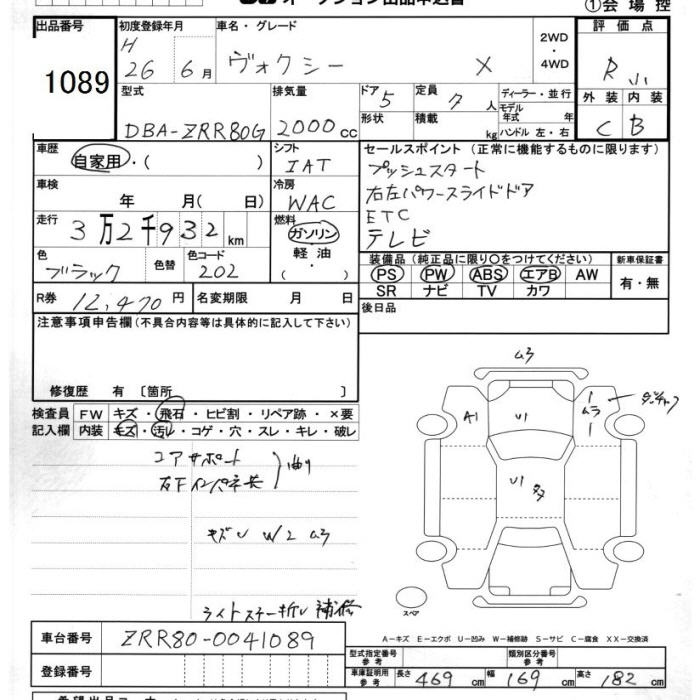 ①会場控
出品番号
1089
初度登録年月
H
26 6月
車名・グレード
ヴォクシー X
2WD
・
4WD
評価点
R
外装 内装
C B
型式
DBA-ZRR80G
排気量
2000cc
ドア 5
形状
定員 7人
積載 kg
ディーラー・並行
モデル
年式 年
ハンドル 左・右
車歴
自家用・( )
シフト
IAT
車検
年 月(日)
冷房
WAC
走行
3万2千932km
燃料
ガソリン
軽油
・
( )
色
ブラック
色替
色コード
202
R券 12,470円
名変期限 月 日
セールスポイント(正常に機能するものに限ります)
プッシュスタート
右左パワースライドドア
ETC
テレビ
装備品(純正品に限り○をつけてください)
PS PW ABS エアB AW
SR ナビ TV カワ
新車保証書
有・無
後日品
注意事項申告欄(不具合内容等は具体的に記入して下さい)
修復歴 有〔箇所 〕
検査員
記入欄
FW キズ・飛石・ヒビ割・リペア跡・×要
内装 キズ・汚レ・コゲ・穴・スレ・キレ・破レ
コアサポート
右下インパネ長
曲り
キズU W2 ムラ
ライトステー折レ 補修
ムラ
A1
U1
ムラ
U1
スペア
A-キズ E-エクボ U-凹み W-補修跡 S-サビ C-腐食 XX-交換済
車台番号 ZRR80-0041089
登録番号
型式指定番号
参考
類別区分番号
参考
車庫証明用
参考
長さ 469cm 幅 169cm 高さ 182cm